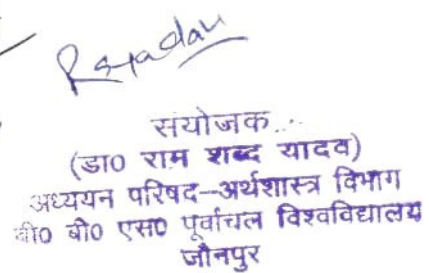 RsYadav
संयोजक
(डा0 राम शब्द यादव)
अध्ययन परिषद–अर्थशास्त्र विभाग
वी0 बी0 एस0 पूर्वांचल विश्वविद्यालय
जौनपुर